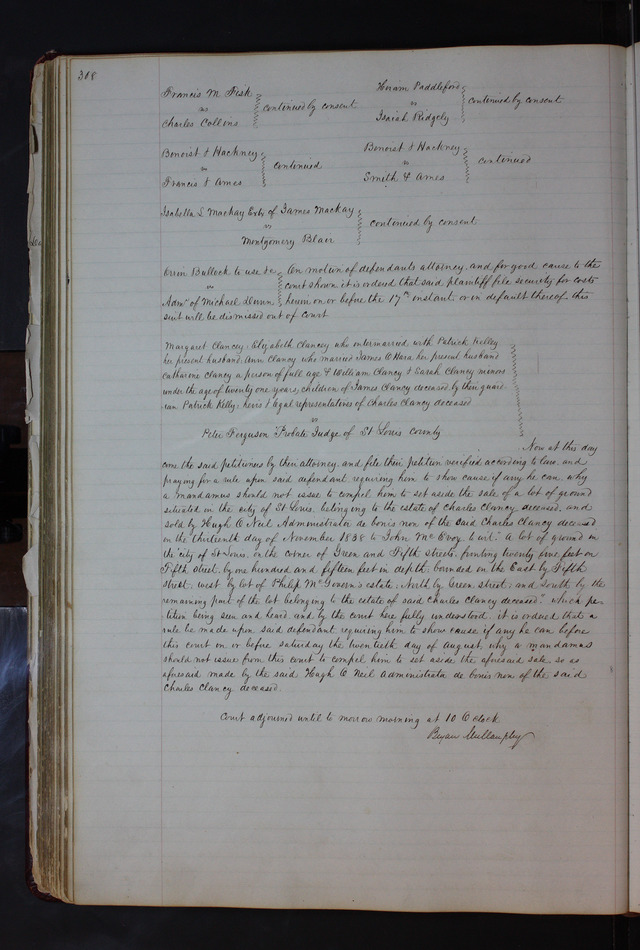 308
Francis M Fisk
vs
Charles Collins
continued by consent
Hiram Paddleford
vs
Isaiah Ridgely
continued by consent
Benoist & Hackney
vs
Francis & Ames
continued
Benoist & Hackney
vs
Smith & Ames
continued
Isabella L Mackay Extx of James Mackay
vs
Montgomery Blair
continued by consent
Orrin Bullock to use &c
vs
Admr of Michael Dunn
On motion of defendants attorney, and for good cause to the
court shown it is ordered that said plaintiff file security for costs
herein on or before the 17th instant, or in default thereof this
suit will be dismissed out of court
Margaret Clancy; Elizabeth Clancy who intermarried with Patrick Kelley
her present husband, Ann Clancy who married James O Hara her present husband
Catharine Clancy a person of full age & William Clancy & Sarah Clancy minors
under the age of twenty one years, children of James Clancy deceased by their guard-
ian Patrick Kelly; heirs & legal representatives of Charles Clancy deceased
vs
Peter Ferguson Probate Judge of St Louis County
Now at this day
come the said petitioners by their attorney, and file their petition verified according to law, and
praying for a rule upon said defendant requiring him to show cause if any he can why
a mandamus should not issue to compel him to set aside the sale of a lot of ground
situated in the city of St Louis, belonging to the estate of Charles Clancy deceased, and
sold by Hugh O Neil Administrator de bonis non of the said Charles Clancy deceased
on the thirteenth day of November 1838 to John Mc Evoy, to wit: "A lot of ground in
the city of St Louis, on the corner of Green and Fifth streets, fronting twenty five feet on
Fifth street, by one hundred and fifteen feet in depth; bounded on the East by Fifth
street; west by lot of Philip McGovern's estate; North by Green street; and South by the
remaining part of the lot belonging to the estate of said Charles Clancy deceased." which pe-
tition being seen and heard, and by the court here fully understood, it is ordered that a
rule be made upon said defendant requiring him to show cause if any he can before
this court on or before saturday the twentieth day of August, why a mandamus
should not issue from this court to compel him to set aside the aforesaid sale so as
aforesaid made by the said Hugh O Neil Administrator de bonis non of the said
Charles Clancy deceased.
Court adjourned until to morrow morning at 10 O clock
Bryan Mullanphy